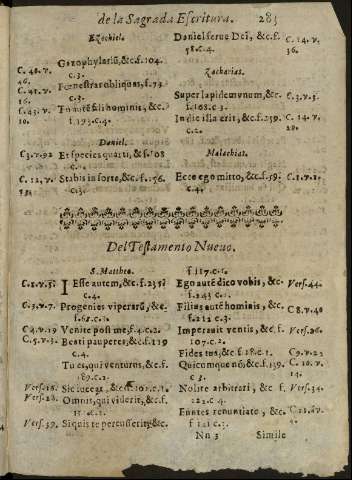 de la Sagrada Escritura. 283
Ezechiel.
C. 40. v. 46. Gazophylariũ, &c. f. 104. c. 3.
C. 41. v. 16. Fenestras obliquas, f. 73. c. 3.
C. 43. v. 10. Tu autē fili hominis, &c. f. 193. c. 4.
Daniel.
C. 3. v. 92 Et species quarti, & f. 108 c. 3.
C. 12. v. Stabis in sorte, &c. f. 76. c. 3.
Daniel serue Dei, &c. f. 58. c. 4. C. 14. v. 36.
Zacharias.
Super lapidem vnum, &c. f. 108. c. 3. C. 3. v.
In die illa erit, &c. f. 239. c. 2. C. 14. v. 20.
Malachias.
Ecce ego mitto, &c. f. 59: c. 4. C. 1. v.
Del Testamento Nueuo.
S. Mattheo.
C. 1. v. Iesse autem, &c. f.
C. 3. v. 7. Progenies viperarũ, &c. f. c. 3.
C 4. v. 19 Venite post me, f. 4. c. 2.
C. 5. v. 3. Beati pauperes, &c. f. 119 c. 4.
Tu es, qui venturus, &c. f. 189. c. 2.
Vers. 16. Sic luceat, &c. f. 102. c. 1.
Vers. 28. Omnis, qui viderit, &c. f. c. 2.
Vers. 39. Si quis te percusserit, &c.
f. 117. c. 1.
Ego autē dico vobis, &c f. 243. c. 1. Vers. 44.
Filius autē hominis, &c. f. 212 c. 3. C 8. v. 40
Imperauit ventis, &c. f. 107. c. 2. Vers. 26.
Fides tos, &c. f. 18. c. 1. C 9. v. 22
Quicumque nō, &c. f. 139. c 3. C. 10. v. 14.
Nolite arbitrari, &c. f. 222. c. 4. Vers. 34.
Euntes renuntiate, &c. f 121 c. 3. C 11. v. 4.
Nn 3 Simile